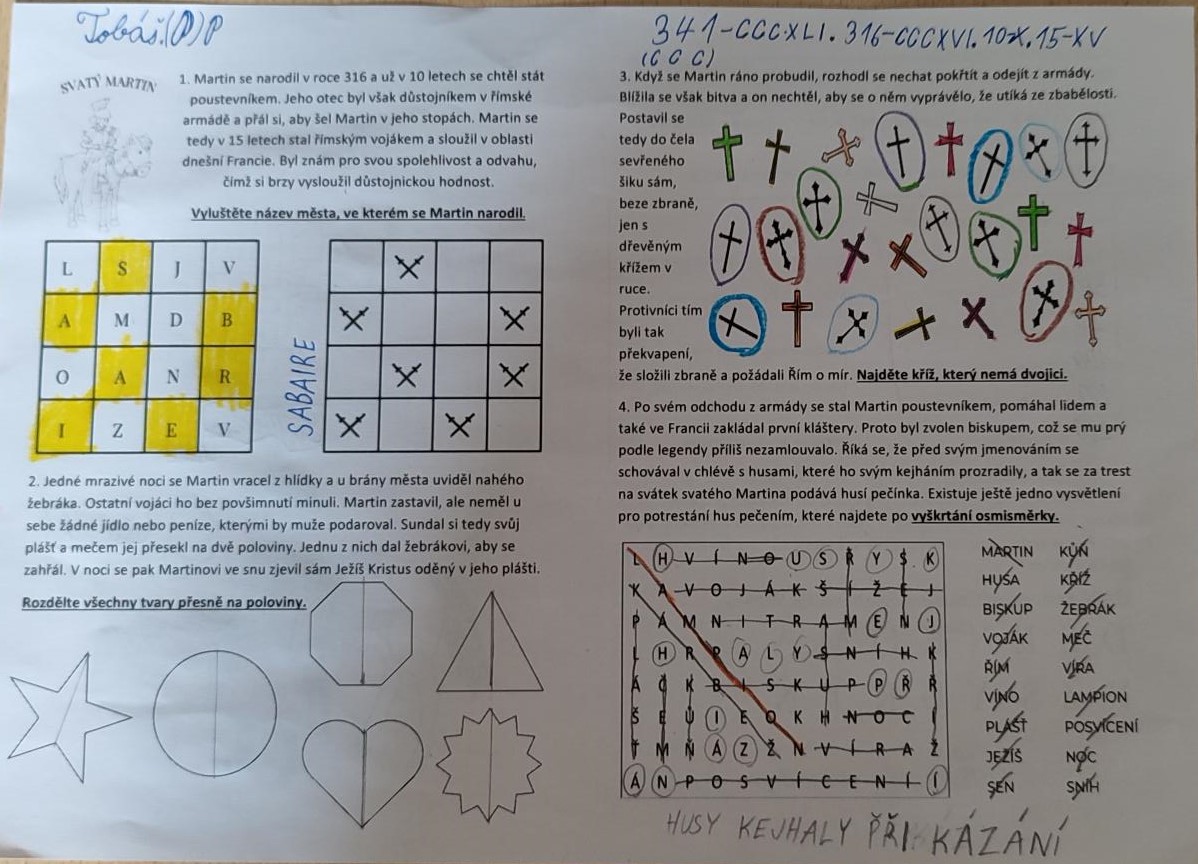 Tobáš.(P)P
341-CCCXLI. 316-CCCXVI. 10-X. 15-XV
(C C C)
SVATÝ MARTIN
1. Martin se narodil v roce 316 a už v 10 letech se chtěl stát
poustevníkem. Jeho otec byl však důstojníkem v římské
armádě a přál si, aby šel Martin v jeho stopách. Martin se
tedy v 15 letech stal římským vojákem a sloužil v oblasti
dnešní Francie. Byl znám pro svou spolehlivost a odvahu,
čímž si brzy vysloužil důstojnickou hodnost.
Vyluštěte název města, ve kterém se Martin narodil.
L S J V
A M D B
O A N R
I Z E V
SABAIRE
2. Jedné mrazivé noci se Martin vracel z hlídky a u brány města uviděl nahého
žebráka. Ostatní vojáci ho bez povšimnutí minuli. Martin zastavil, ale neměl u
sebe žádné jídlo nebo peníze, kterými by muže podaroval. Sundal si tedy svůj
plášť a mečem jej přesekl na dvě poloviny. Jednu z nich dal žebrákovi, aby se
zahřál. V noci se pak Martinovi ve snu zjevil sám Ježíš Kristus oděný v jeho plášti.
Rozdělte všechny tvary přesně na poloviny.
3. Když se Martin ráno probudil, rozhodl se nechat pokřtít a odejít z armády.
Blížila se však bitva a on nechtěl, aby se o něm vyprávělo, že utíká ze zbabělosti.
Postavil se
tedy do čela
sevřeného
šiku sám,
beze zbraně,
jen s
dřevěným
křížem v
ruce.
Protivníci tím
byli tak
překvapení,
že složili zbraně a požádali Řím o mír. Najděte kříž, který nemá dvojici.
4. Po svém odchodu z armády se stal Martin poustevníkem, pomáhal lidem a
také ve Francii zakládal první kláštery. Proto byl zvolen biskupem, což se mu prý
podle legendy příliš nezamlouvalo. Říká se, že před svým jmenováním se
schovával v chlévě s husami, které ho svým kejháním prozradily, a tak se za trest
na svátek svatého Martina podává husí pečínka. Existuje ještě jedno vysvětlení
pro potrestání hus pečením, které najdete po vyškrtání osmisměrky.
L H V Í N O U S Ř Y S K
K A V O J Á K Š Í Ž E J
P Á M N I T R A M E N J
L H R P A L Y S N Í H K
Á Č K B I S K U P P Ř Ř
Š E Ů I E O K H N O C Í
Ť M Ň Á Z Ž N V Í R A Ž
Á N P O S V Í C E N Í Í
MARTIN KŮŇ
HUSA KŘÍŽ
BISKUP ŽEBRÁK
VOJÁK MEČ
ŘÍM VÍRA
VÍNO LAMPION
PLÁŠŤ POSVÍCENÍ
JEŽÍŠ NOC
SEN SNÍH
HUSY KEJHALY PŘI KÁZÁNÍ